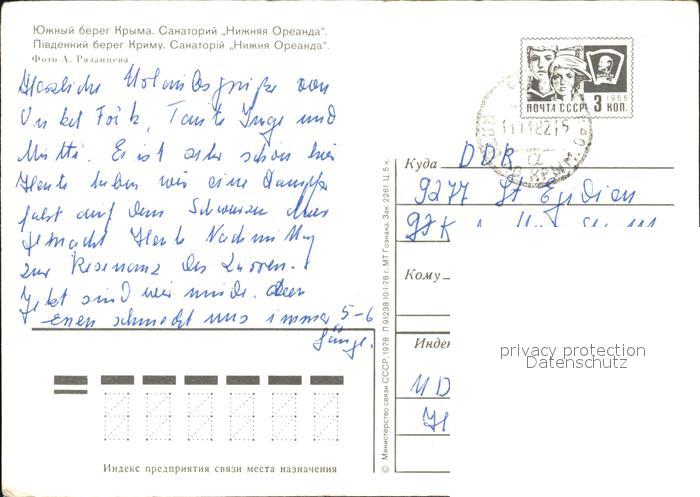 Южный берег Крыма. Санаторий „Нижняя Ореанда“.
Південний берег Криму. Санаторій „Нижня Ореанда“.
Фото А. Рязанцева
Herzliche Urlaubsgrüße von
Onkel Fritz, Tante Inge und
Mutti. Es ist sehr schön hier
Heute haben wir eine Dampfer
fahrt auf dem Schwarzen Meer
gemacht Heute Nachmittag
zur Residenz des Zaren.
Jetzt sind wir müde. Aber
Essen schmeckt uns immer 5-6
Gänge.
Индекс предприятия связи места назначения
© Министерство связи СССР. 1978 Л 91238 10.1-78 г. МТ Гознака. Зак. 2261. Ц. 5 к.
ПОЧТА СССР 1966
3 КОП.
Куда DDR
9277 St Egidien
Кому
Индек
privacy protection
Datenschutz